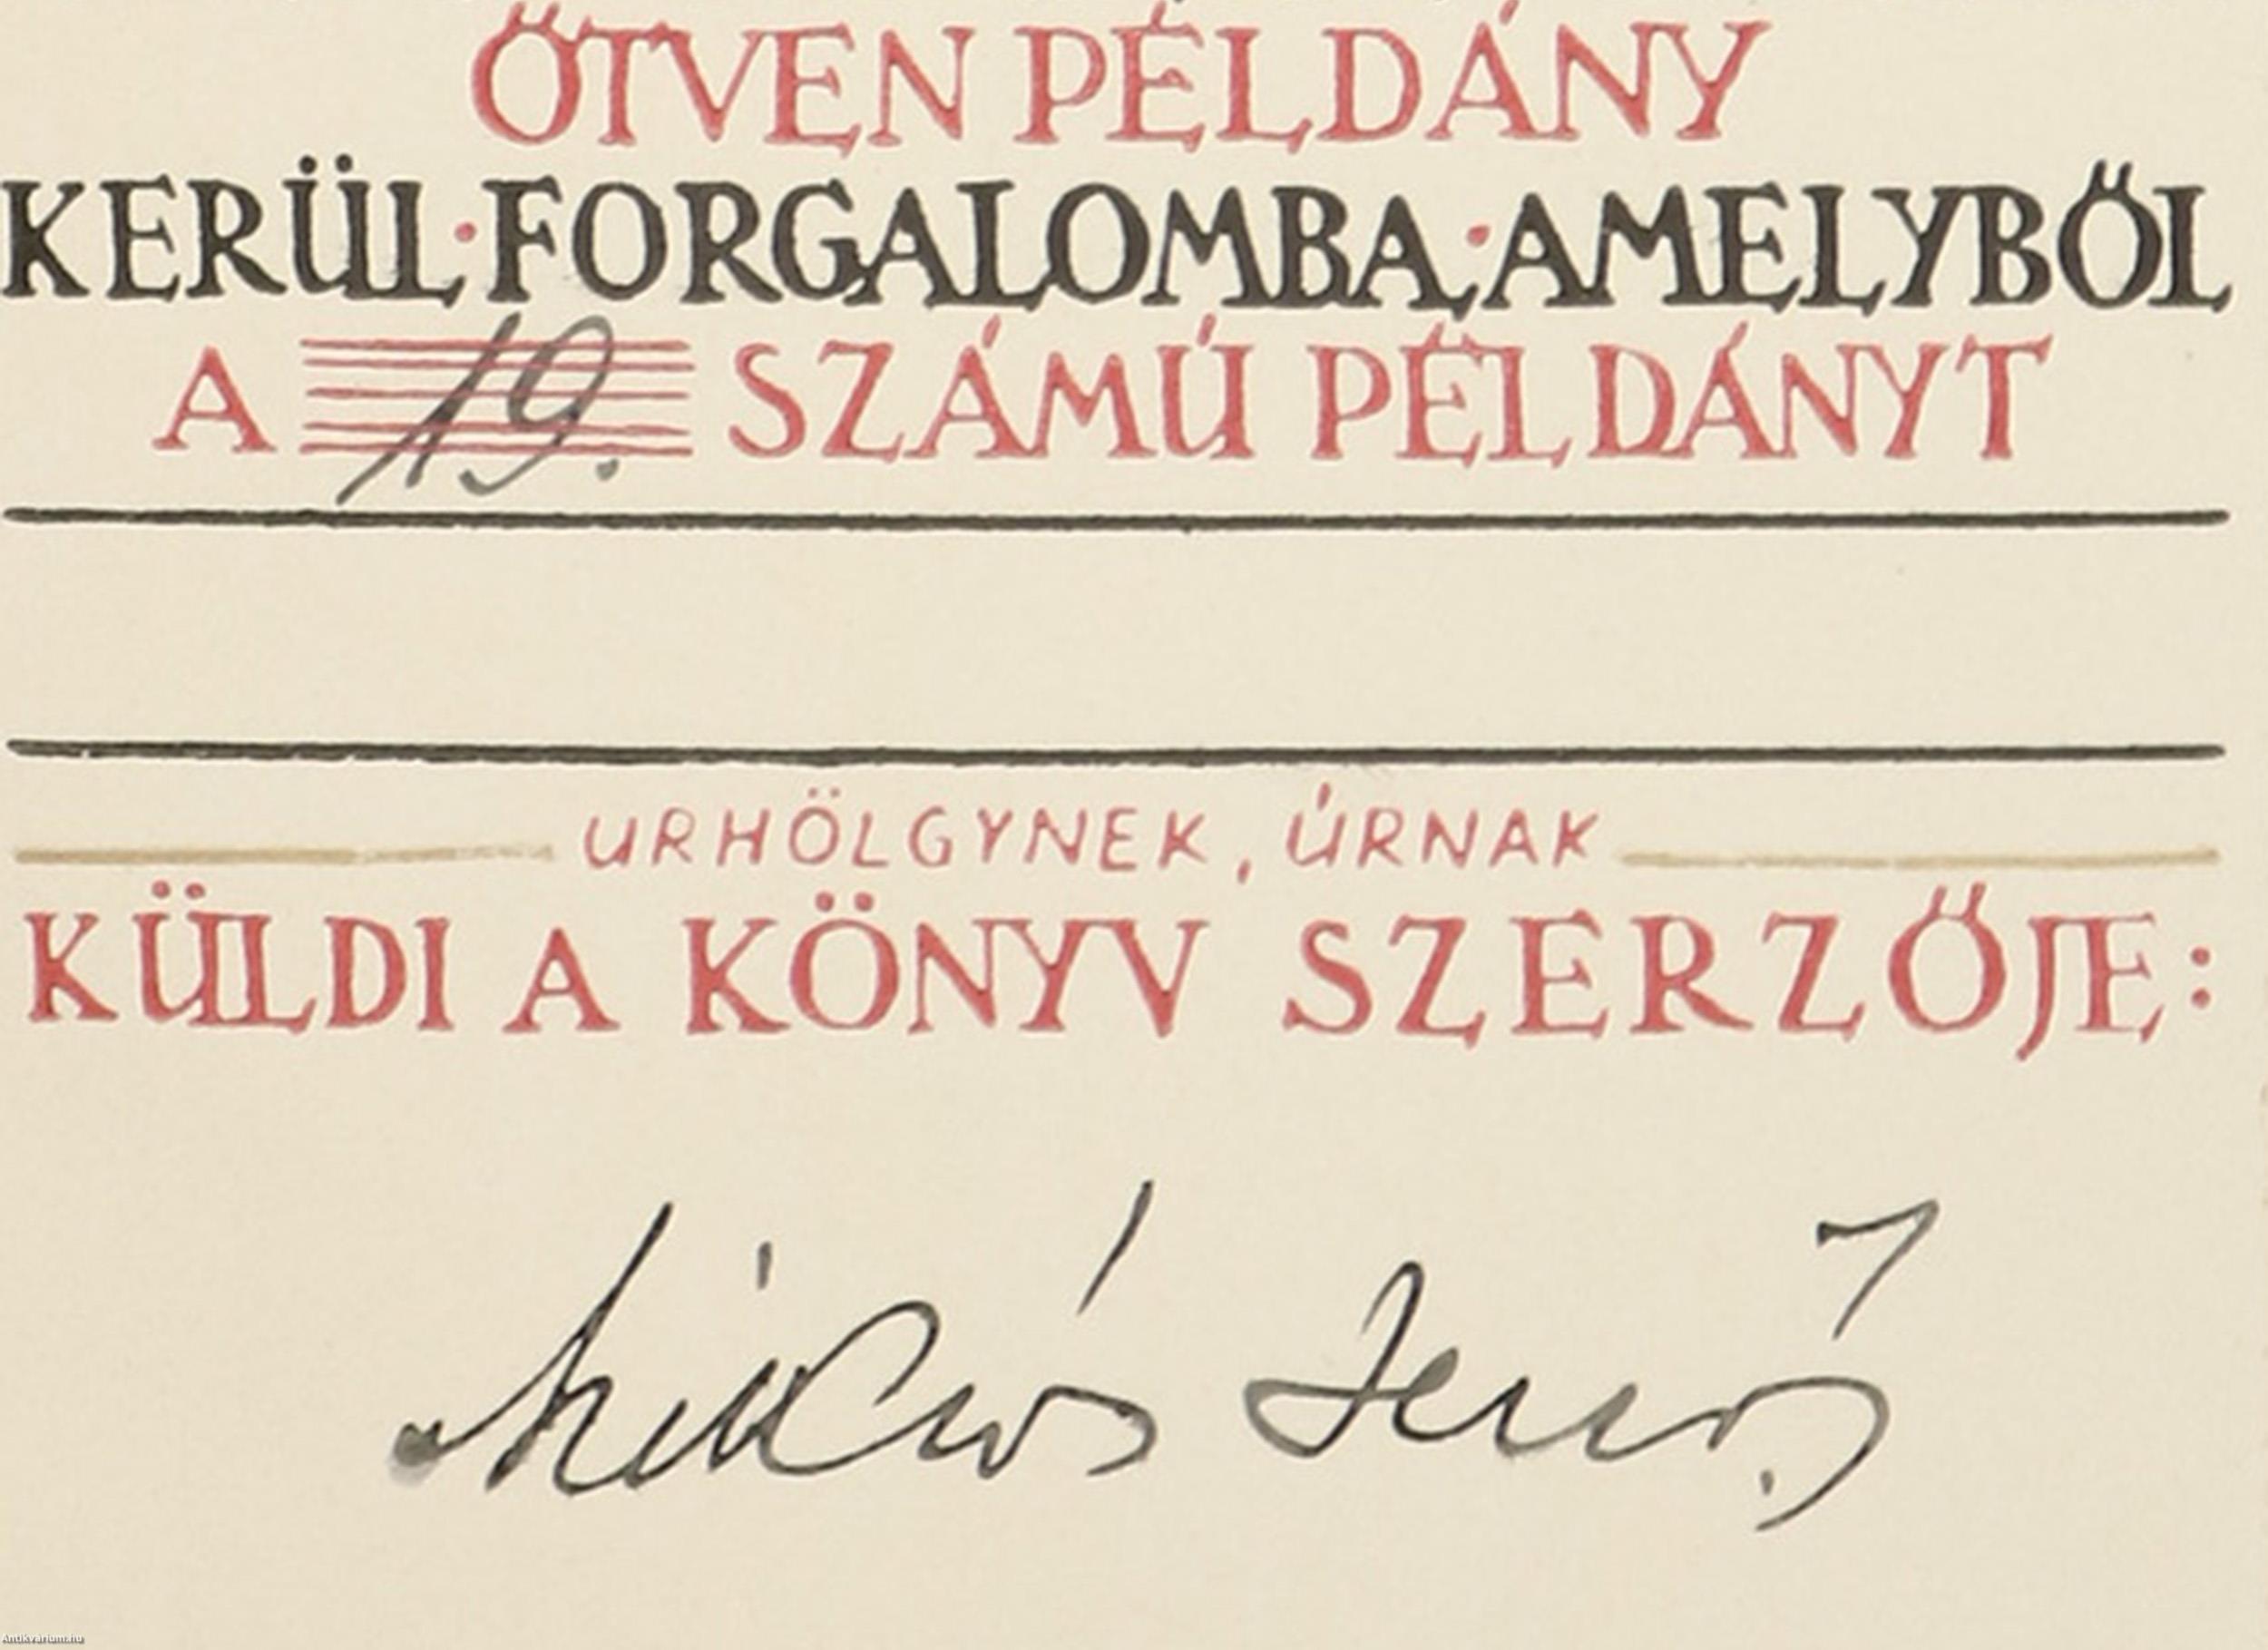 ÖTVEN PÉLDÁNY
KERÜL·FORGALOMBA·AMELYBŐL
A 19. SZÁMÚ PÉLDÁNYT
URHÖLGYNEK, ÚRNAK
KÜLDI A KÖNYV SZERZŐJE:
Miklós Jenő
Antikvarium.hu